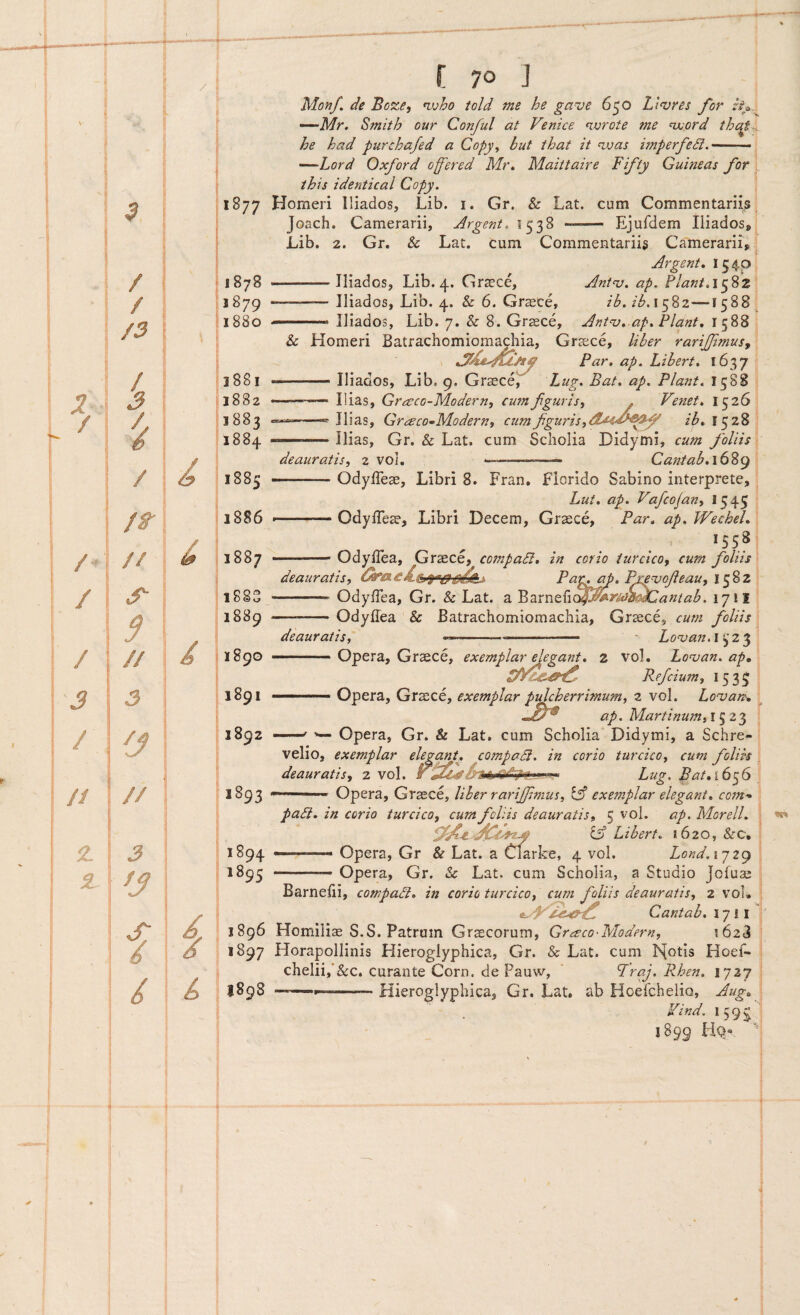 [ 70 ]
Monſ. de Boze, who told me he gave 650 Livres for it.
—Mr. Smith our Conſul at Venice wrote me word that
he had purchaſed a Copy, but that it was imperfect.——
—Lord Oxford offered Mr. Maittaire Fifty Guineas for
this identical Copy.
3 1877 Homeri Iliados, Lib. 1. Gr. & Lat. cum Commentariis
Joach. Camerarii, Argent. 1538 —— Ejuſdem Iliados,
Lib. 2. Gr. & Lat. cum Commentariis Camerarii,
Argent. 1540
/ 1878 ——— Iliados, Lib. 4. Græcè, Antv. ap. Plant. 1582
/ 1879 ——— Iliados, Lib. 4. & 6. Græcé, ib. ib. 1582—1588
/3 1880 ——— Iliados, Lib. 7. & 8. Græcé, Antv. ap. Plant. 1588
& Homeri Batrachomiomachia, Græcé, liber rariſſimus,
The King Par. ap. Libert. 1637
/ 1881 ——— Iliados, Lib. 9. Græcé, Lug. Bat. ap. Plant. 1588
2 3 1882 ——— Ilias, Græco-Modern, cum figuris, Venet. 1526
/ 1883 ——— Ilias, Græco-Modern, cum figuris, ib. 1528
6 1884 ——— Ilias, Gr. & Lat. cum Scholia Didymi, cum foliis
deauratis, 2 vol. ——— Cantab. 1689
/ 6 1885 ——— Odyſſeæ, Libri 8. Fran. Florido Sabino interprete,
Lut. ap. Vaſcoſan, 1545
18 1886 ——— Odyſſeæ, Libri Decem, Græcé, Par. ap. Wechel.
1558
/ 11 6 1887 ——— Odyſſea, Græcé, compact. in corio turcico, cum foliis
deauratis, Par. ap. Prevoſteau, 1582
/ 5 1888 ——— Odyſſea, Gr. & Lat. a Barneſio, Cantab. 1711
9 1889 ——— Odyſſea & Batrachomiomachia, Græcé, cum foliis
deauratis, ——— Lovan. 1523
/ 11 6 1890 ——— Opera, Græcé, exemplar elegant. 2 vol. Lovan. ap.
Reſcium, 1535
3 3 1891 ——— Opera, Græcé, exemplar pulcherrimum, 2 vol. Lovan.
Do ap. Martinum, 1523
/ 19 1892 ——— Opera, Gr. & Lat. cum Scholia Didymi, a Schre-
velio, exemplar elegant. compact. in corio turcico, cum foliis
deauratis, 2 vol. Lug. Bat. 1656
11 11 1893 ——— Opera, Græcé, liber rariſſimus, & exemplar elegant. com-
pact. in corio turcico, cum foliis deauratis, 5 vol. ap. Morell.
The King & Libert. 1620, &c.
2 3 1894 ——— Opera, Gr & Lat. a Clarke, 4 vol. Lond. 1729
2 19 1895 ——— Opera, Gr. & Lat. cum Scholia, a Studio Joſuæ
Barneſii, compact. in corio turcico, cum foliis deauratis, 2 vol.
Cantab. 1711
5 6 1896 Homiliæ S.S. Patrum Græcorum, Græco-Modern, 1628
6 6 1897 Horapollinis Hieroglyphica, Gr. & Lat. cum Notis Hoeſ-
chelii, &c. curante Corn. de Pauw, Traj. Rhen. 1727
6 6 1898 ——— Hieroglyphica, Gr. Lat. ab Hoeſchelio, Aug.
Vind. 1595
1899 Ho-